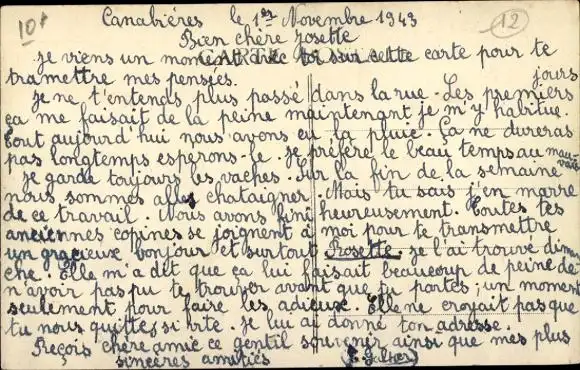 10f
12
Canabiéres le 1er Novembre 1943
Bien chère Josette
CARTE POSTALE
Je viens un moment avec toi sur cette carte pour te
tramettre mes pensées.
Je ne t'entends plus passé dans la rue. Les premiers jours
ça me faisait de la peine maintenant je m'y habitue.
Tout aujourd'hui nous avons eu la pluie. Ça ne dureras
pas longtemps esperons-le. Je préfère le beau temps au mauvais
Je garde toujours les vaches. Sur la fin de la semaine
nous sommes alles chataigner. Mais tu sais j'en marre
de ce travail. Nous avons fini heureusement. Toutes tes
anciennes copines se joignent à moi pour te transmettre
un gracieux bonjour et surtout Rosette je l'ai trouvé diman
che. Elle m'a dit que ça lui faisait beaucoup de peine de
n'avoir pas pu te trouver avant que tu partes, un moment
seulement pour faire les adieux. Elle ne croyait pas que
tu nous quittes si vite. Je lui ai donné ton adresse.
Reçois chère amie ce gentil souvenir ainsi que mes plus
sincères amitiés